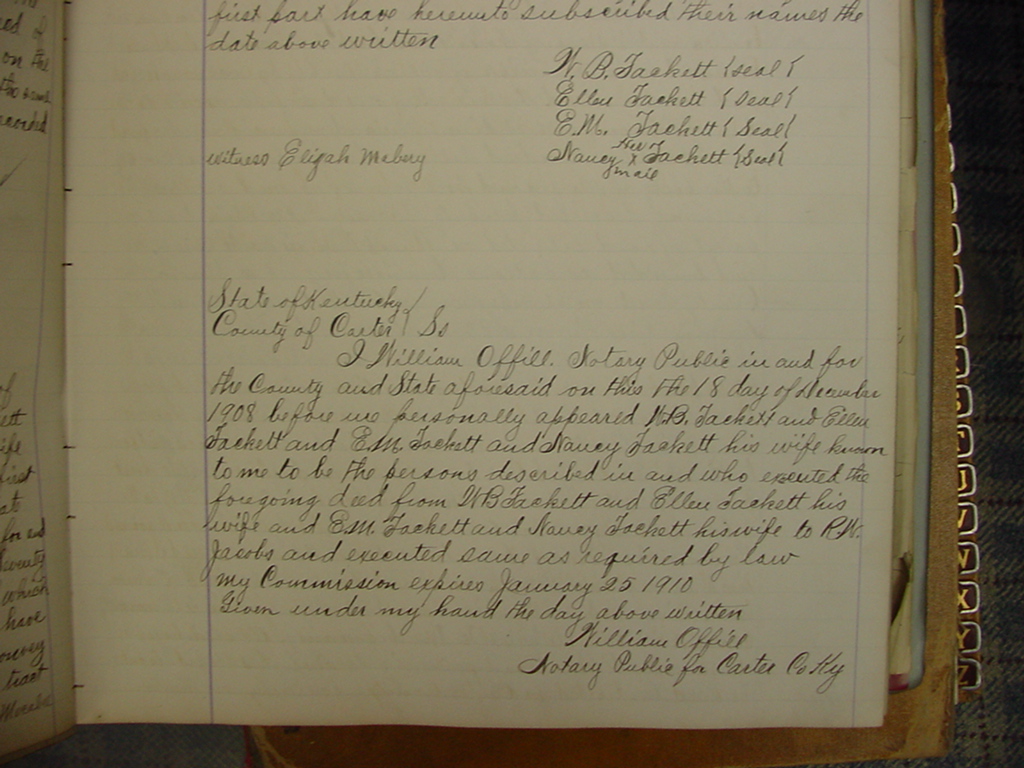 ed of
on the
the same
recorded
of
ett
ife
first
at
for and
seventy
which
have
convey
tract
first part have hereunto subscribed their names the
date above written
W. B. Fackett {seal}
Ellen Fackett {Seal}
E.M. Fackett {Seal}
witness Elijah Mabery Nancy her x mark Fackett {Seal}
State of Kentucky
County of Carter } Ss
I William Offill. Notary Public in and for
the County and State aforesaid on this the 18 day of December
1908 before me personally appeared W.B. Fackett and Ellen
Fackett and E.M. Fackett and Nancy Fackett his wife known
to me to be the persons described in and who executed the
foregoing deed from W B Fackett and Ellen Fackett his
wife and E.M. Fackett and Nancy Fackett his wife to R.W.
Jacobs and executed same as required by law
my Commission expires January 25 1910
Given under my hand the day above written
William Offill
Notary Public for Carter Co Ky